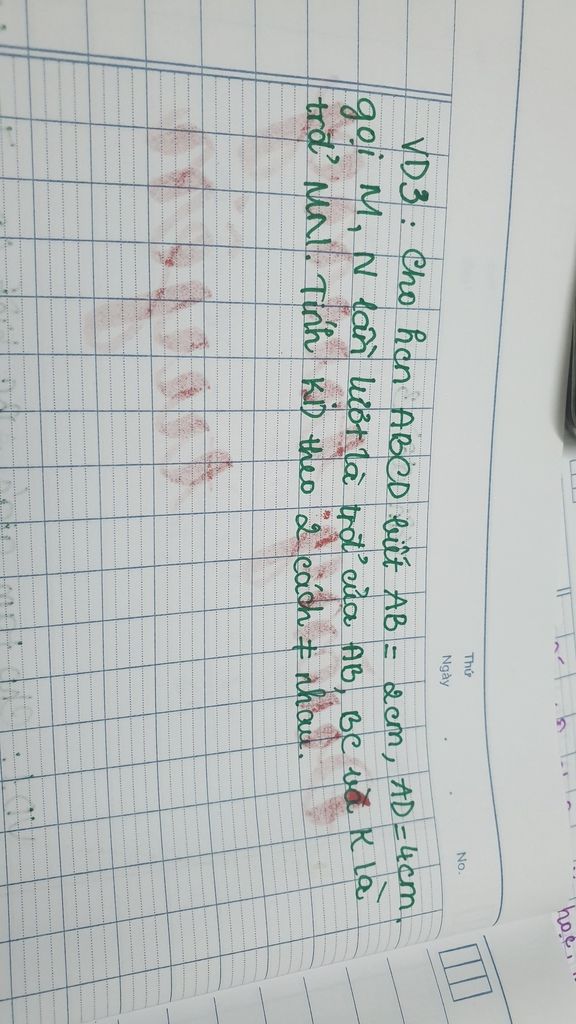 Thứ
Ngày
No.
VD3 : Cho hcn ABCD biết AB = 2cm, AD = 4cm.
gọi M, N lần lượt là trđ của AB, BC và K là
trđ MN. Tính KD theo 2 cách ≠ nhau.